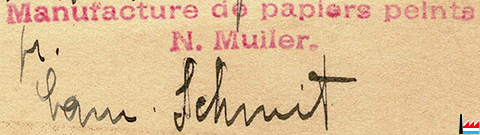 Manufacture de papiers peints
N. Muller.
pr.
Cam. Schmit